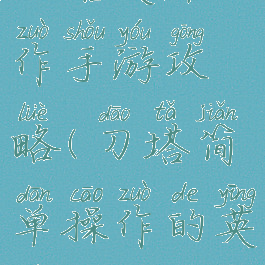 zuò shǒu yóu gōng
作手游攻
lüè dāo tǎ jiǎn
略(刀塔简
dān cāo zuò de yīng
单操作的英